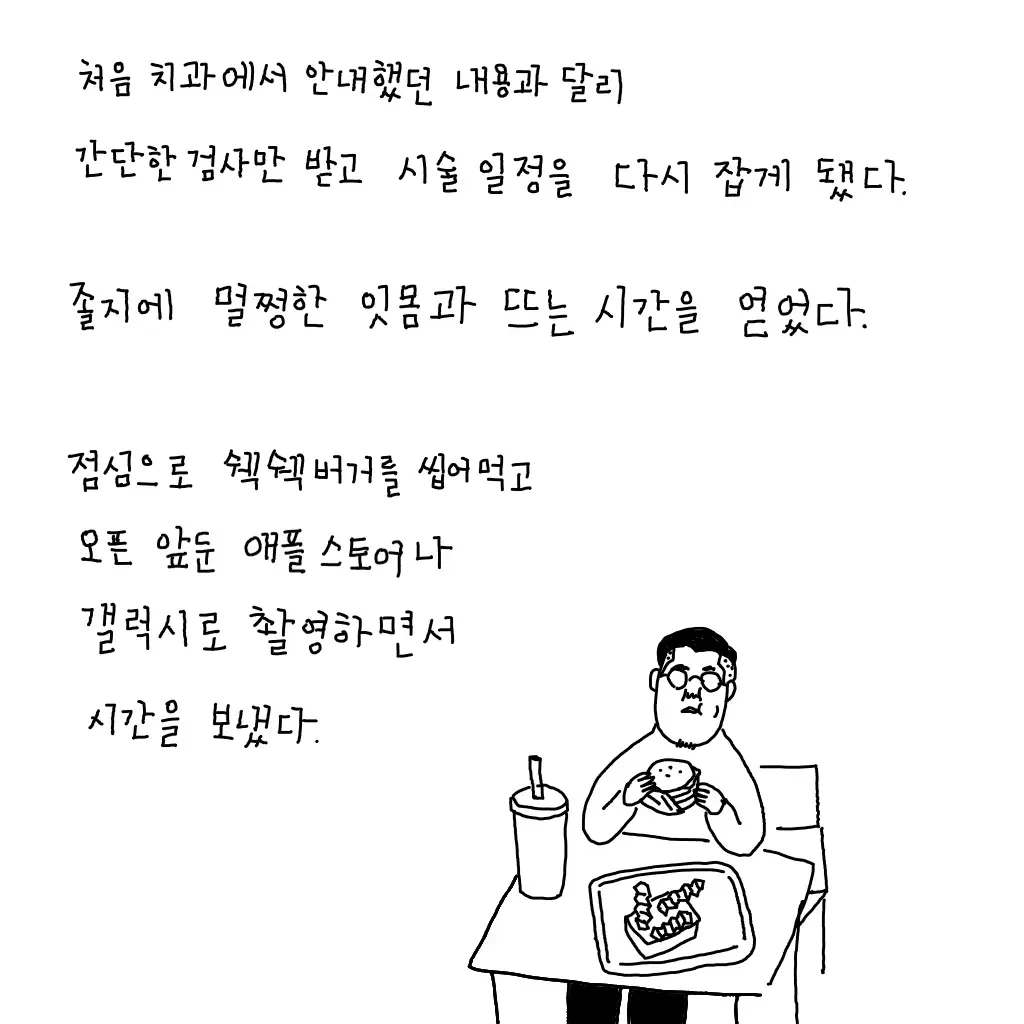 처음 치과에서 안내했던 내용과 달리
간단한 검사만 받고 시술 일정을 다시 잡게 됐다.
졸지에 멀쩡한 잇몸과 뜨는 시간을 얻었다.
점심으로 쉑쉑버거를 씹어먹고
오픈 앞둔 애플스토어나
갤럭시로 촬영하면서
시간을 보냈다.